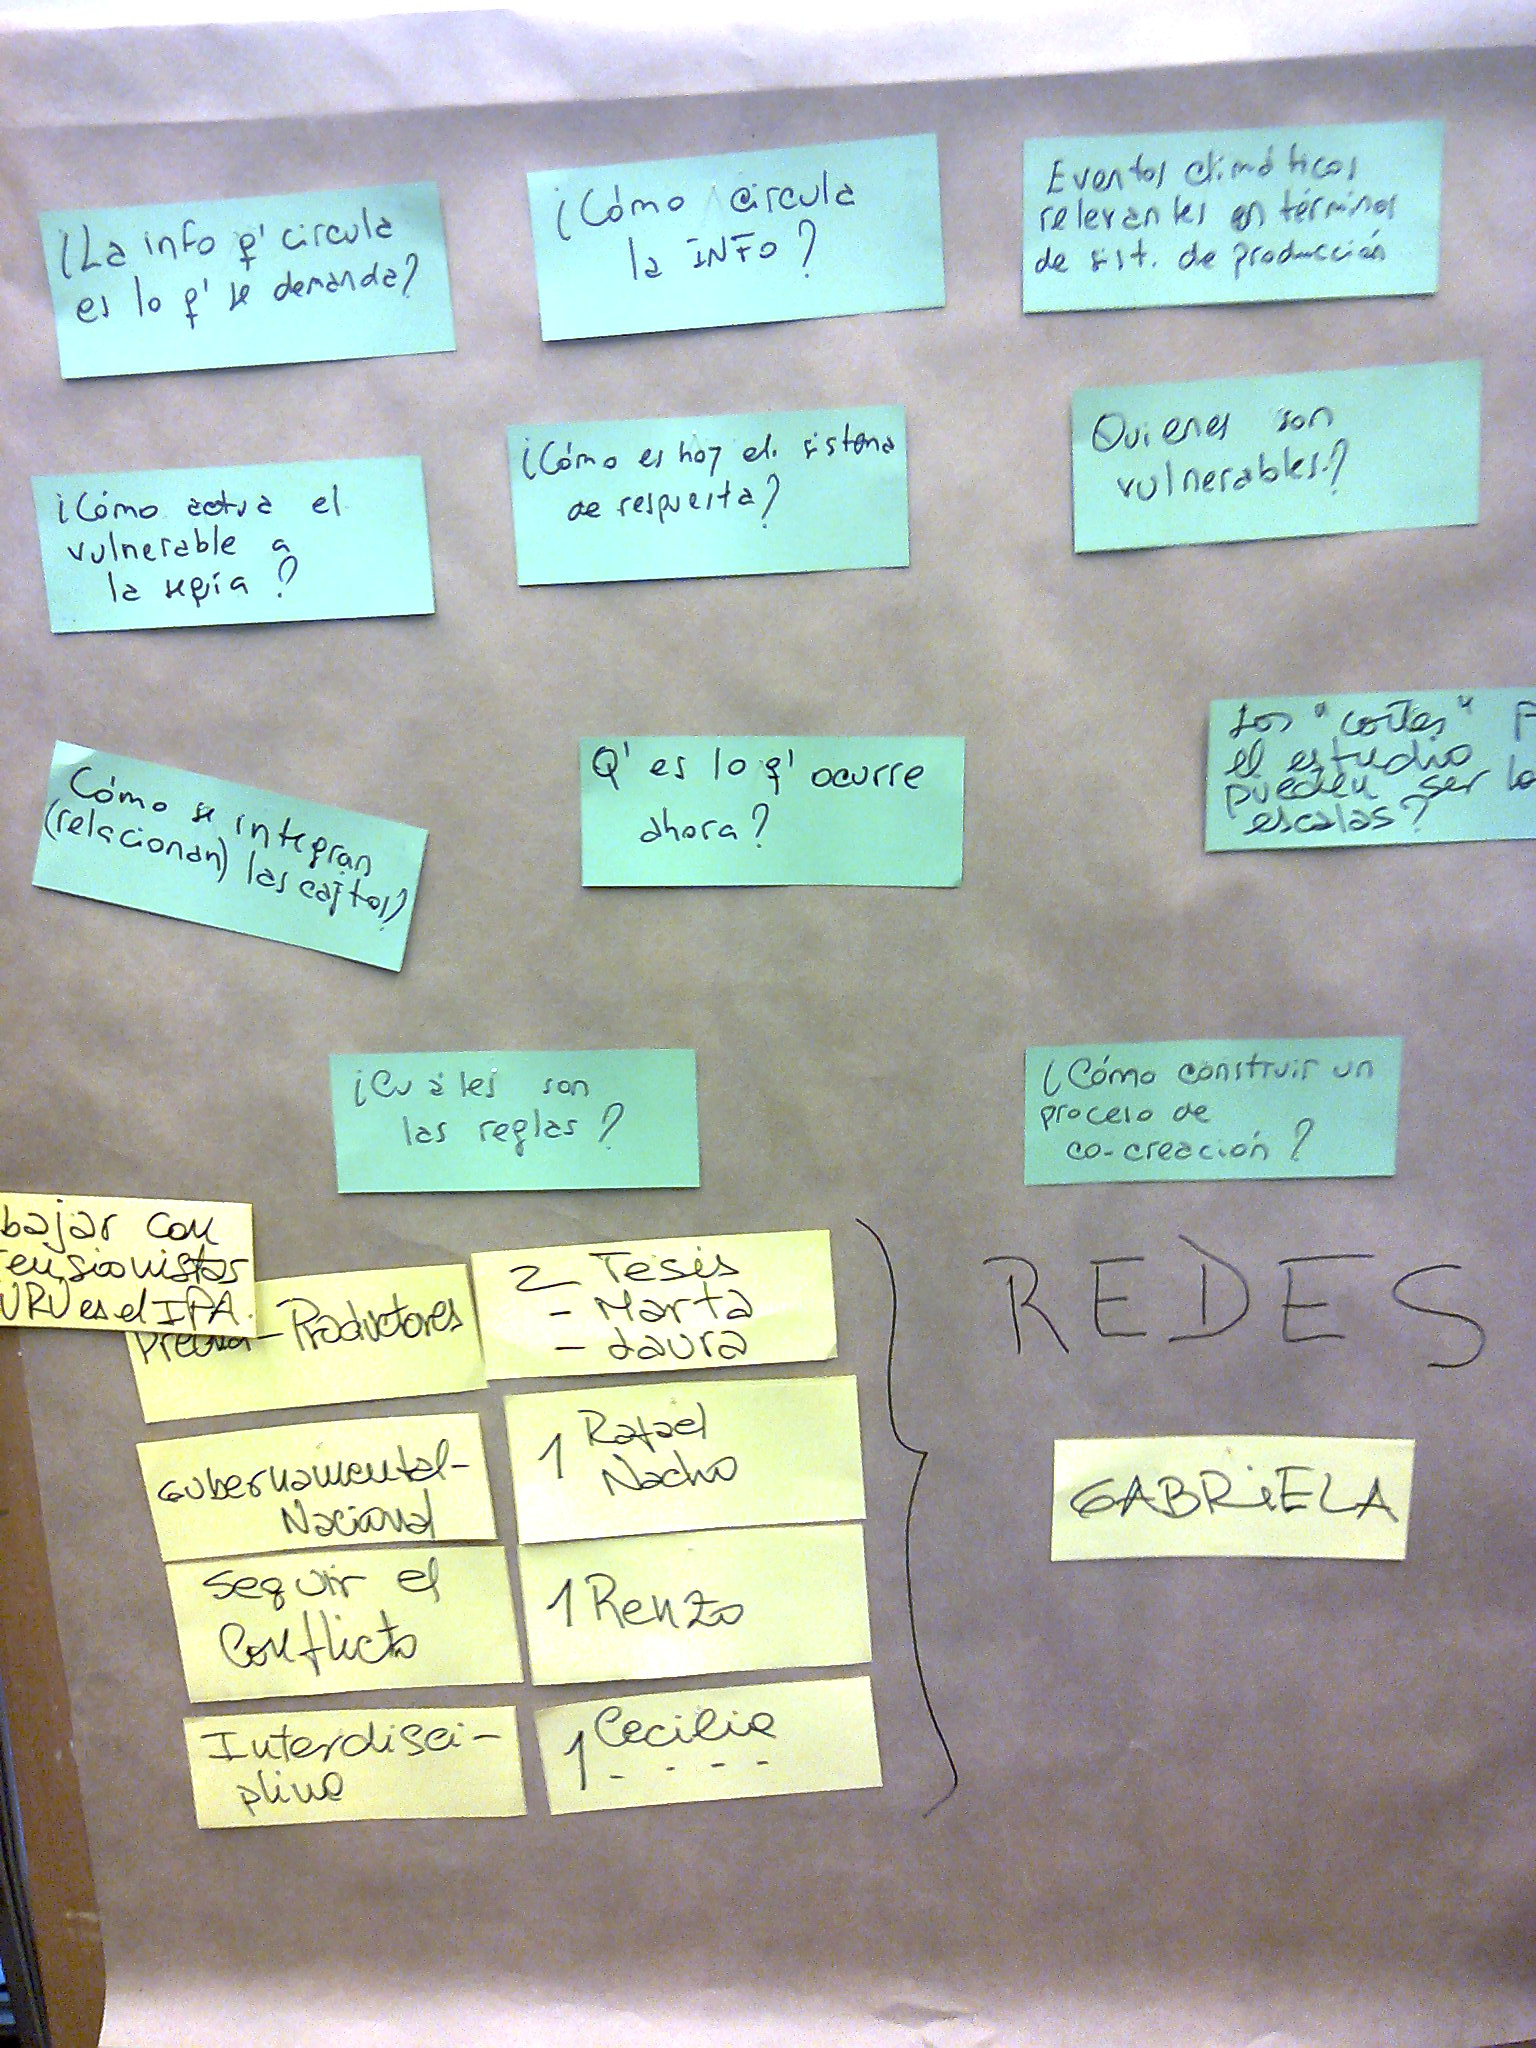 ¿La info q' circula
es lo q' se demanda?
¿Cómo circula
la INFO?
Eventos climáticos
relevantes en términos
de sist. de producción
¿Cómo actua el
vulnerable a
la sequía?
¿Cómo es hoy el sistema
de respuesta?
Quienes son
vulnerables?
Cómo se integran
(relacionan) las cajitas?
Q' es lo q' ocurre
ahora?
Los "cortes" P
el estudio
pueden ser la
escalas?
¿Cuáles son
las reglas?
¿Cómo construir un
proceso de
co-creación?
bajar con
tensionistas
URU es el IPA.
Prensa-Productores
2 Tesis
- Marta
- Laura
Gubernamental-
Nacional
1 Rafael
Nacho
Seguir el
Conflicto
1 Renzo
Interdisci-
plina
1 Cecilia
- - - -
REDES
GABRiELA